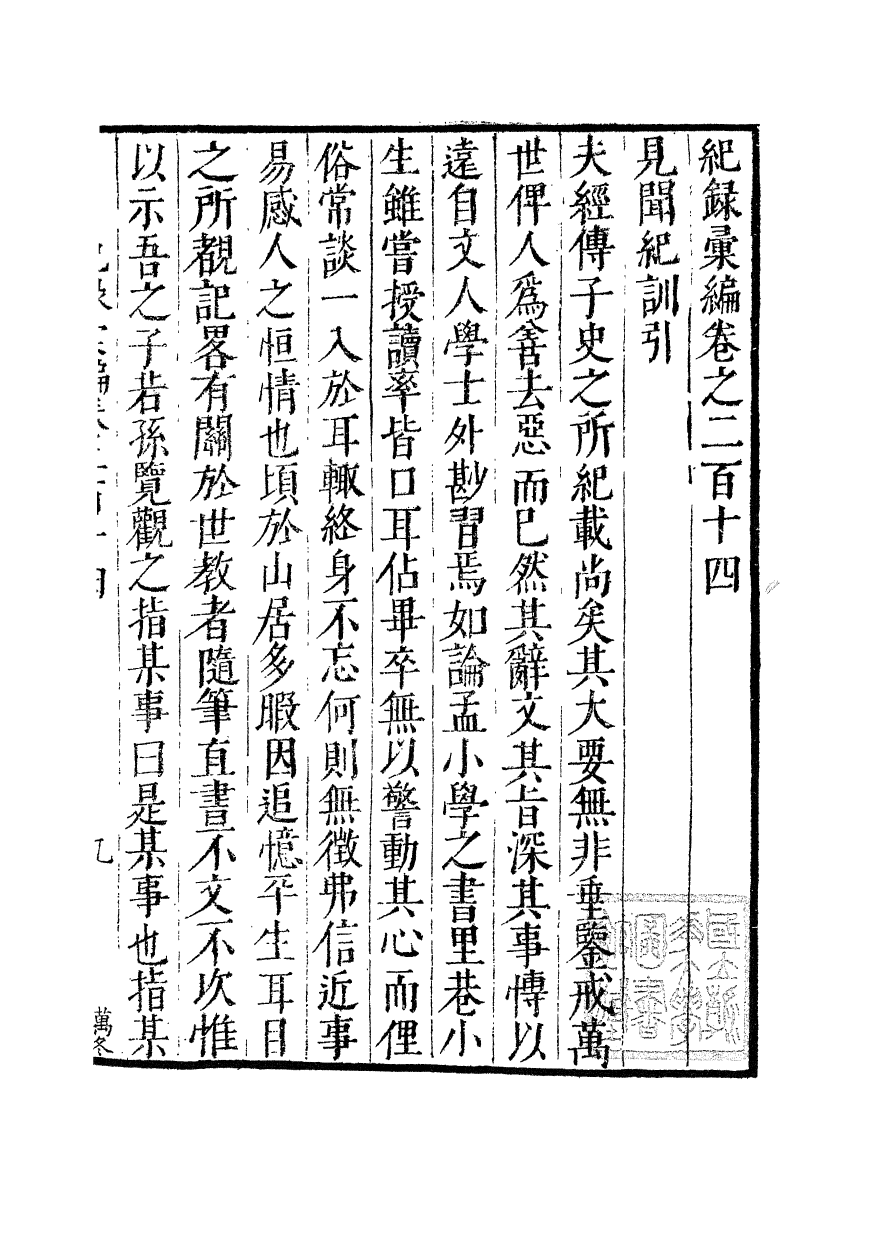 紀録彙編卷之二百十四
見聞紀訓引
夫經傳子史之所紀載尚矣其大要無非垂鑒戒萬
世俾人爲善去惡而已然其辭文其旨深其事慱以
遠自文人學士外尠習焉如論孟小學之書里巷小
生雖嘗授讀率皆口耳佔畢卒無以警動其心而俚
俗常談一入於耳輙終身不忘何則無徵弗信近事
易感人之恒情也頃於山居多暇因追憶平生耳目
之所覩記畧有關於世教者隨筆直書不文不次惟
以示吾之子若孫覽觀之指某事曰是某事也指某
九
萬冬